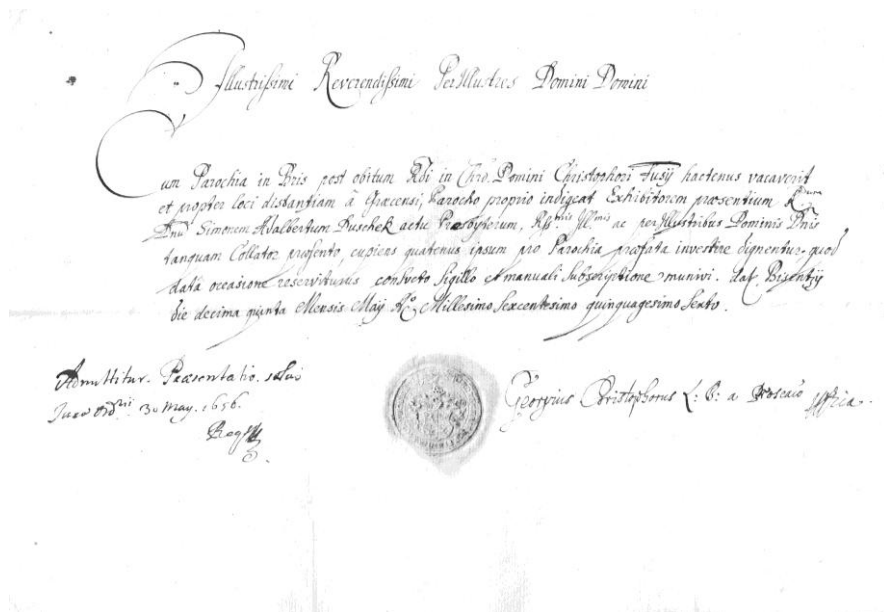 Illustrissimi Reverendissimi PerIllustres Domini Domini
Cum Parochia in Bris post obitum Rdi in Chro. Domini Christophori Fusij hactenus vacaverit
et propter loci distantiam à Gracensi, Parocho proprio indigeat Exhibitorem præsentium
Dnū Simonem Adalbertum Duschek actu Presbyterum, Rss:mis Ill:mis ac perIllustribus Dominis Dnis
tanquam Collator præsento, cupiens quatenus ipsum pro Parochia præfata investire dignentur. quod
datâ occasione reserviturus consveto Sigillo et manuali Subscriptione munivi. dat.
die decima quinta Mensis Maij Aō Millesimo Sexcentesimo quinquagesimo Sexto.
Admittitur Præsentatio. salvo
Jure Ordrii 30 May. 1656.
Georgius Christophorus L: B: a Proskaw